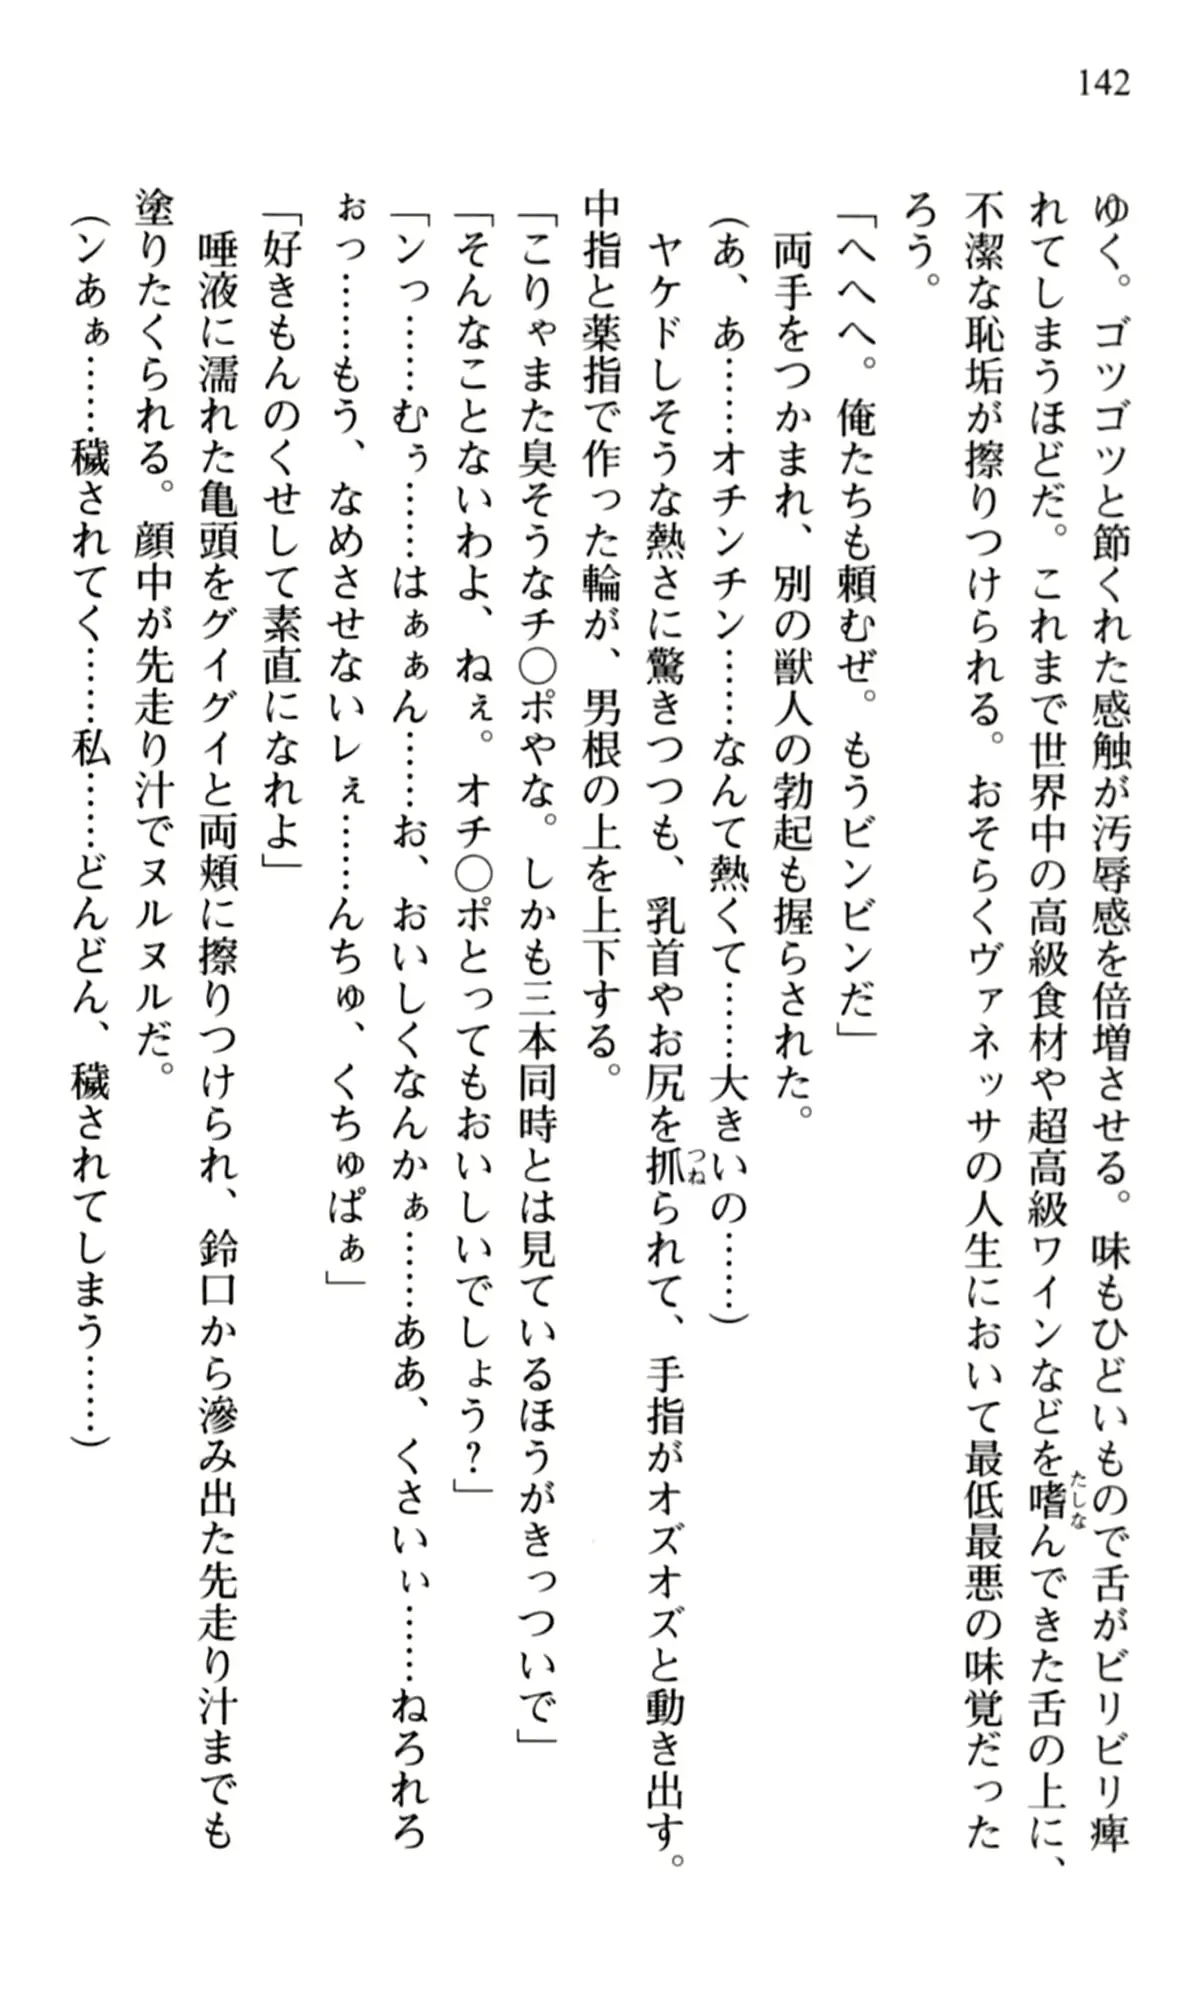 142
ゆく。ゴツゴツと節くれた感触が汚辱感を倍増させる。味もひどいもので舌がビリビリ痺
れてしまうほどだ。これまで世界中の高級食材や超高級ワインなどを嗜んできた舌の上に、
たしな
不潔な恥垢が擦りつけられる。おそらくヴァネッサの人生において最低最悪の味覚だった
ろう。
「へへへ。俺たちも頼むぜ。もうビンビンだ」
両手をつかまれ、別の獣人の勃起も握らされた。
(あ、あ……オチンチン……なんて熱くて……大きいの……)
ヤケドしそうな熱さに驚きつつも、乳首やお尻を抓られて、手指がオズオズと動き出す。
つね
中指と薬指で作った輪が、男根の上を上下する。
「こりゃまた臭そうなチ〇ポやな。しかも三本同時とは見ているほうがきっついで」
「そんなことないわよ、ねぇ。オチ〇ポとってもおいしいでしょう?」
「ンっ……むぅ……はぁぁん……お、おいしくなんかぁ……ああ、くさいぃ……ねろれろ
ぉっ……もう、なめさせないレぇ……んちゅ、くちゅぱぁ」
「好きもんのくせして素直になれよ」
唾液に濡れた亀頭をグイグイと両頬に擦りつけられ、鈴口から滲み出た先走り汁までも
塗りたくられる。顔中が先走り汁でヌルヌルだ。
(ンあぁ……穢されてく……私……どんどん、穢されてしまう……)